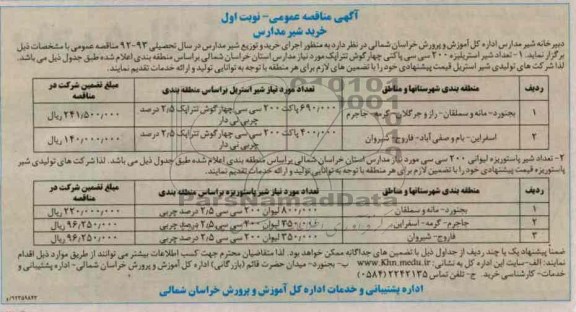 آگهی مناقصه عمومی- نوبت اول
خرید شیر مدارس
دبیرخانه شیر مدارس اداره کل آموزش و پرورش خراسان شمالی در نظر دارد به منظور اجرای خرید و توزیع شیر مدارس در سال تحصیلی ۹۳-۹۲ مناقصه عمومی با مشخصات ذیل
برگزار نماید. ۱- تعداد شیر استریلیزه ۲۰۰ سی سی پاکتی چهارگوش تتراپک مورد نیاز مدارس استان خراسان شمالی براساس منطقه بندی اعلام شده طبق جدول ذیل می باشد.
لذا شرکت های تولیدی شیر استریل قیمت پیشنهادی خود را با تضمین های لازم برای هر منطقه با توجه به توانایی تولید و ارائه خدمات تقدیم نمایند.
ردیف منطقه بندی شهرستانها و مناطق تعداد مورد نیاز شیر استریل براساس منطقه بندی مبلغ تضمین شرکت در مناقصه
۱ بجنورد- مانه و سملقان- راز و جرگلان- گرمه- جاجرم ۶۹۰/۰۰۰ پاکت ۲۰۰ سی سی چهارگوش تتراپک ۲/۵ درصد چربی نی دار ۲۴۱/۵۰۰/۰۰۰ ریال
۲ اسفراین- بام و صفی آباد- فاروج- شیروان ۴۰۰/۰۰۰ پاکت ۲۰۰ سی سی چهارگوش تتراپک ۲/۵ درصد چربی نی دار ۱۴۰/۰۰۰/۰۰۰ ریال
۲- تعداد شیر پاستوریزه لیوانی ۲۰۰ سی سی مورد نیاز مدارس استان خراسان شمالی براساس منطقه بندی اعلام شده طبق جدول ذیل می باشد. لذا شرکت های تولیدی شیر
پاستوریزه قیمت پیشنهادی خود را با تضمین لازم برای هر منطقه با توجه به توانایی تولید و ارائه خدمات تقدیم نمایند.
ردیف منطقه بندی شهرستانها و مناطق تعداد مورد نیاز شیر پاستوریزه براساس منطقه بندی مبلغ تضمین شرکت در مناقصه
۱ بجنورد- مانه و سملقان ۸۰۰/۰۰۰ لیوان ۲۰۰ سی سی ۲/۵ درصد چربی ۲۲۰/۰۰۰/۰۰۰ ریال
۲ جاجرم- گرمه- اسفراین ۳۵۰/۰۰۰ لیوان ۲۰۰ سی سی ۲/۵ درصد چربی ۹۶/۲۵۰/۰۰۰ ریال
۳ فاروج- شیروان ۳۵۰/۰۰۰ لیوان ۲۰۰ سی سی ۲/۵ درصد چربی ۹۶/۲۵۰/۰۰۰ ریال
ضمنا پیشنهاد یک یا چند ردیف از جداول ذیل با تضمین های جداگانه ممکن خواهد بود. لذا متقاضیان محترم جهت کسب اطلاعات بیشتر می توانند از طریق موارد ذیل اقدام
نمایند: الف- سایت این اداره کل به نشانی: www.Khn.medu.ir ب- بجنورد- میدان حضرت قائم (بازرگانی) اداره کل آموزش و پرورش خراسان شمالی- اداره پشتیبانی و
خدمات- کارشناسی خرید. ج- تلفن تماس ۲۲۴۲۱۳۵ (۰۵۸۴)
اداره پشتیبانی و خدمات اداره کل آموزش و پرورش خراسان شمالی
ParsNamadData